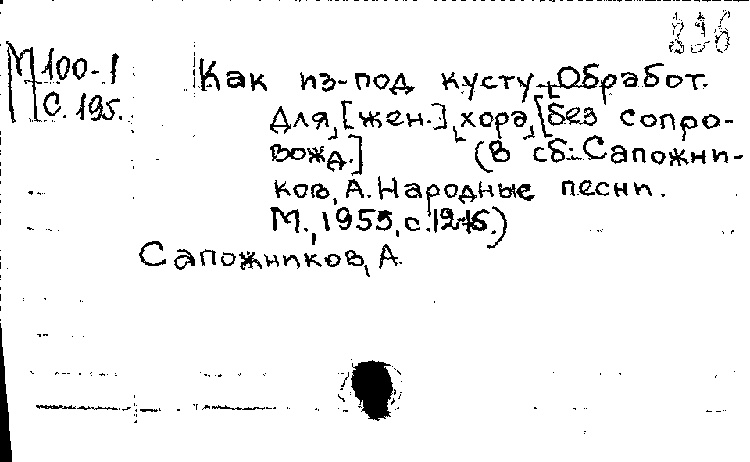 896
М100-1
С. 195.
Как из-под кусту. Обработ.
для [жен.] хора, [без сопро-
вожд.] (В сб: Сапожни-
ков, А. Народные песни.
М., 1955, с.
Сапожников, А.